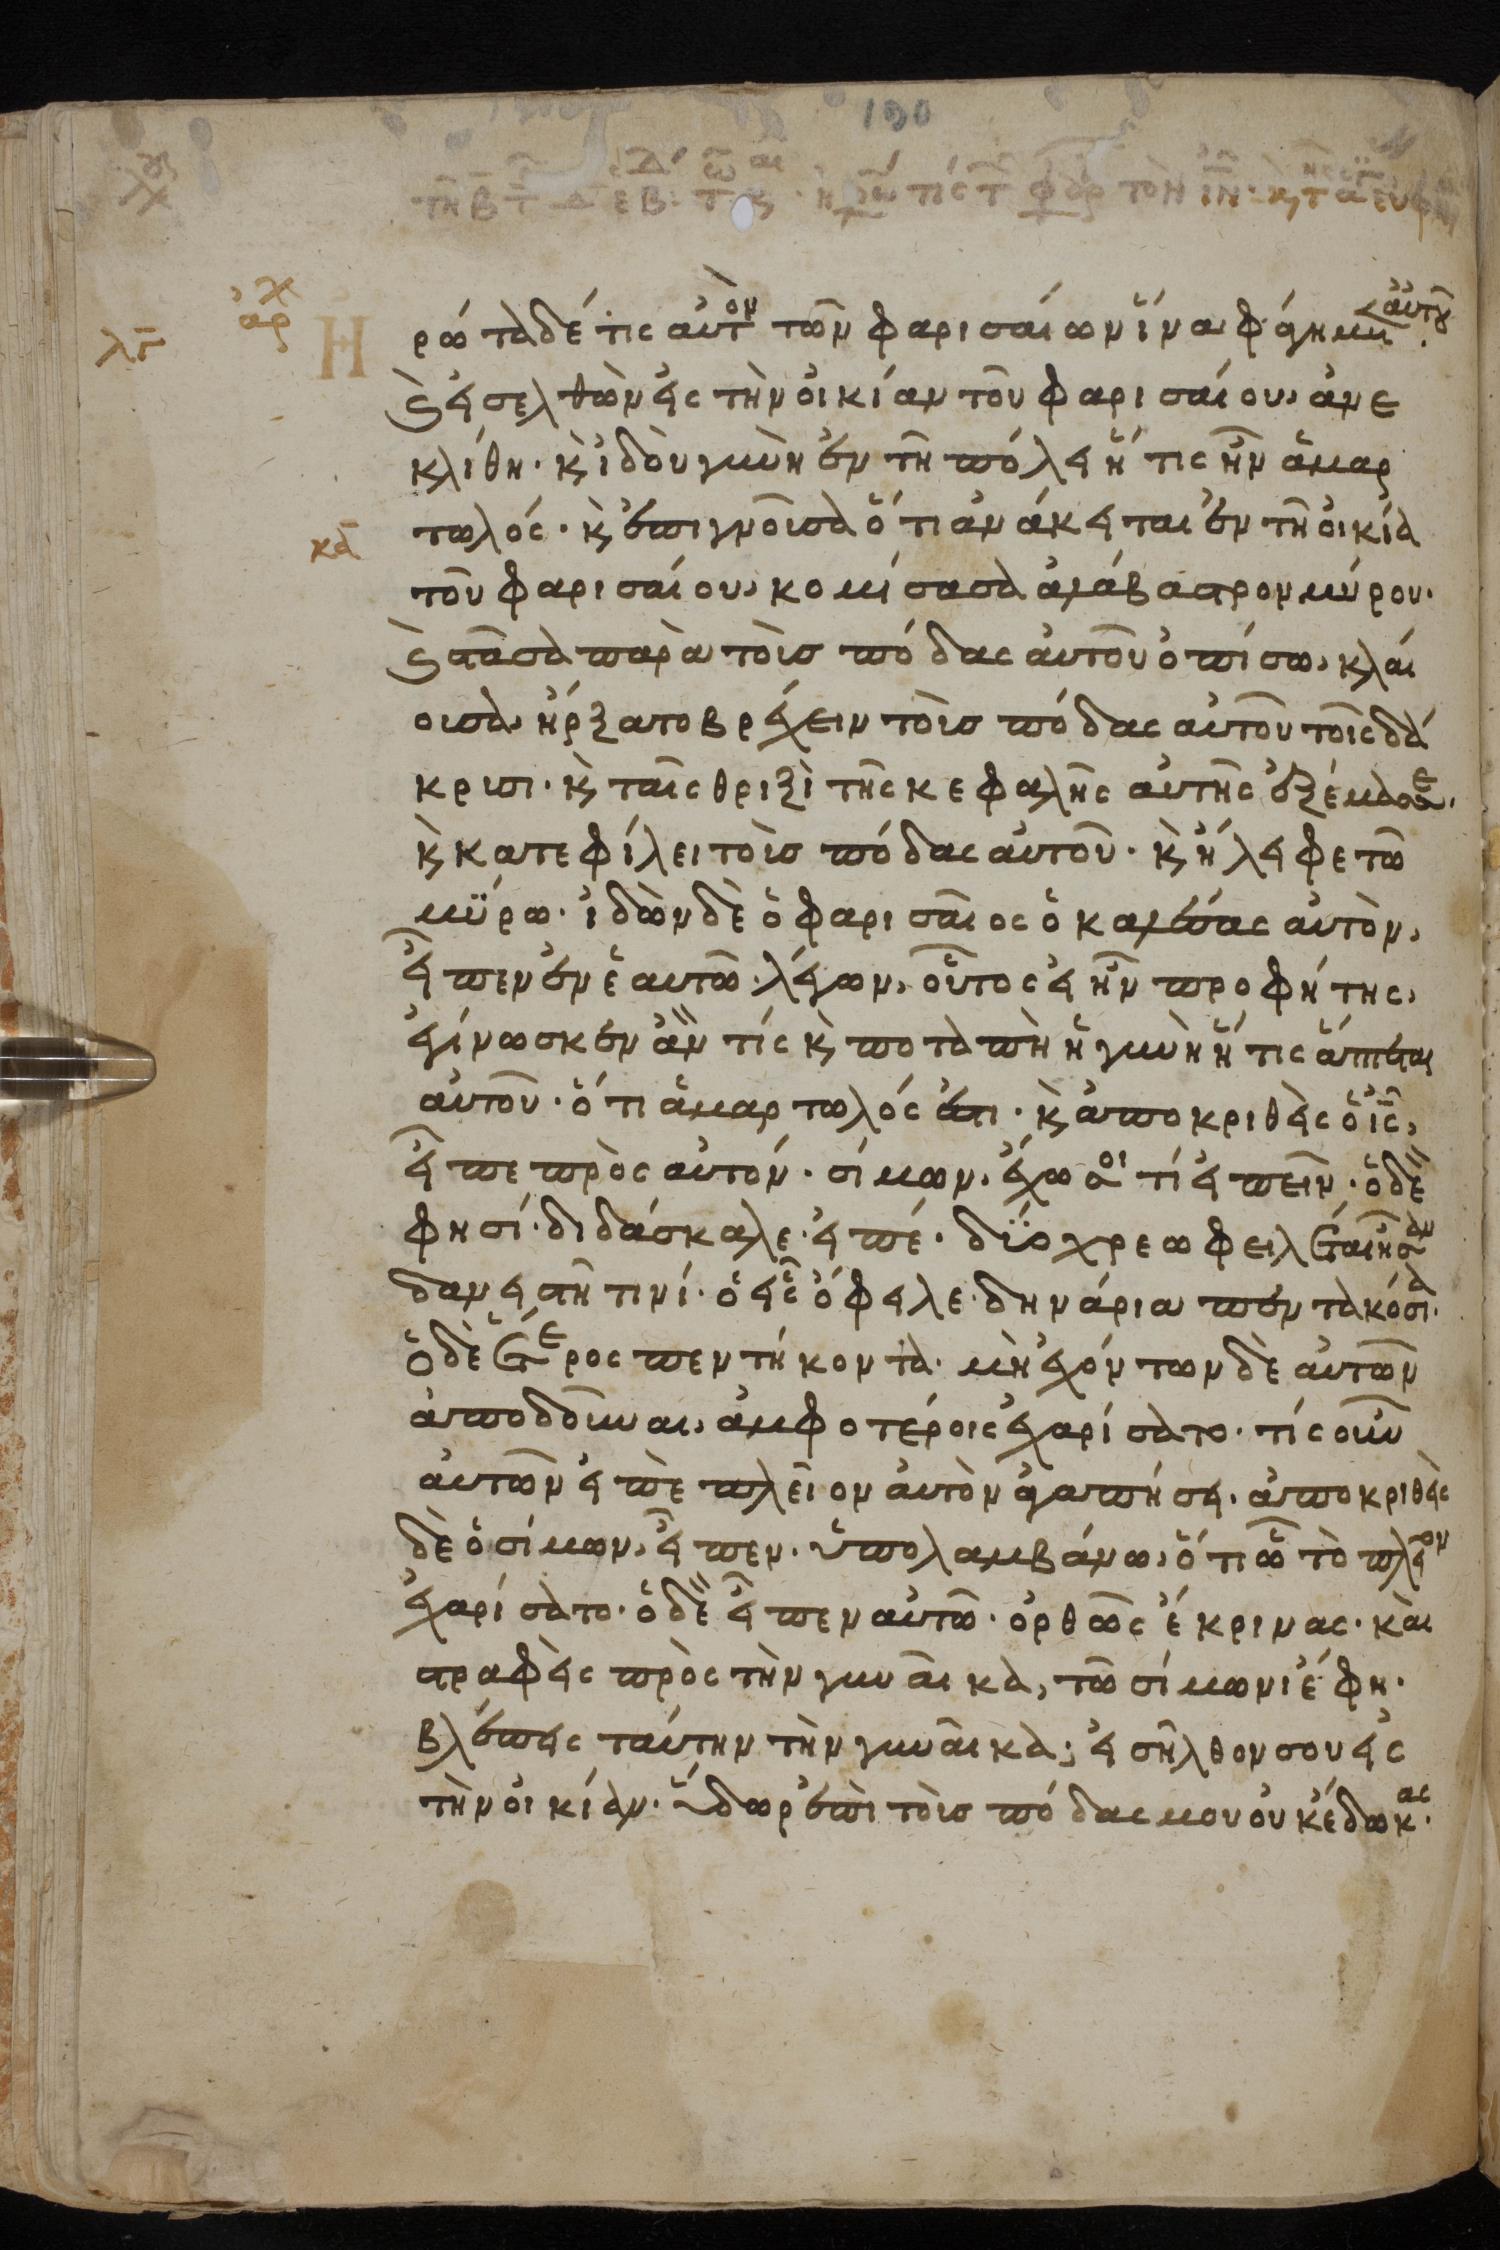 190
Ἠρώτα δέ τις αὐτὸν τῶν φαρισαίων ἵνα φάγῃ μετ αὐτοῦ.
καὶ εἰσελθὼν εἰς τὴν οἰκίαν τοῦ φαρισαίου, ἀνε
κλίθη· κ ἰδοὺ γυνὴ ἐν τῆ πόλει ἥτις ἦν ἁμαρ
τωλός· κ ἐπιγνοῦσα ὅτι ἀνάκειται ἐν τῆ οἰκία
τοῦ φαρισαίου, κομίσασα ἀλάβαστρον μύρου·
καὶ στᾶσα παρὰ τοὺς πόδας αὐτοῦ ὀπίσω, κλαί
ουσα, ἤρξατο βρέχειν τοὺς πόδας αὐτοῦ τοῖς δά
κρυσι· κ ταῖς θριξὶ τῆς κεφαλῆς αὐτῆς ἐξέμασσε·
κ κατεφίλει τοὺς πόδας αὐτοῦ· κ ἤλειφε τῶ
μύρω· ἰδὼν δὲ ὁ φαρισαῖος ὁ καλέσας αὐτὸν,
εἶπεν ἐν ἑαυτῶ λέγων, οὗτος εἰ ἦν προφήτης,
ἐγίνωσκεν ἂν τίς κ ποταπὴ ἡ γυνὴ ἥτις ἅπτεται
αὐτοῦ· ὅτι ἁμαρτωλός ἐστι· κ ἀποκριθεὶς ὁ ἰς,
εἶπε πρὸς αὐτόν· σίμων, ἔχω σοι τί εἰπεῖν· ὁ δὲ
φησί· διδάσκαλε εἰπέ· δύο χρεωφειλέται ἦσαν
δανειστῆ τινί· ὁ εἷς ὤφειλε δηνάρια πεντακόσια·
ὁ δὲ ἕτερος πεντήκοντα· μὴ ἐχόντων δὲ αὐτῶν
ἀποδοῦναι, ἀμφοτέροις ἐχαρίσατο· τίς οὖν
αὐτῶν εἰπὲ πλεῖον αὐτὸν ἀγαπήσει· ἀποκριθεὶς
δὲ ὁ σίμων, εἶπεν· ὑπολαμβάνω, ὅτι ὧ τὸ πλεῖον
ἐχαρίσατο· ὁ δὲ εἶπεν αὐτῶ· ὀρθῶς ἔκρινας· καὶ
στραφεὶς πρὸς τὴν γυναῖκα, τῶ σίμωνι ἔφη·
βλέπεις ταύτην τὴν γυναῖκα; εἰσῆλθον σου εἰς
τὴν οἰκίαν· ὕδωρ ἐπὶ τοὺς πόδας μου οὐκ ἔδωκας·